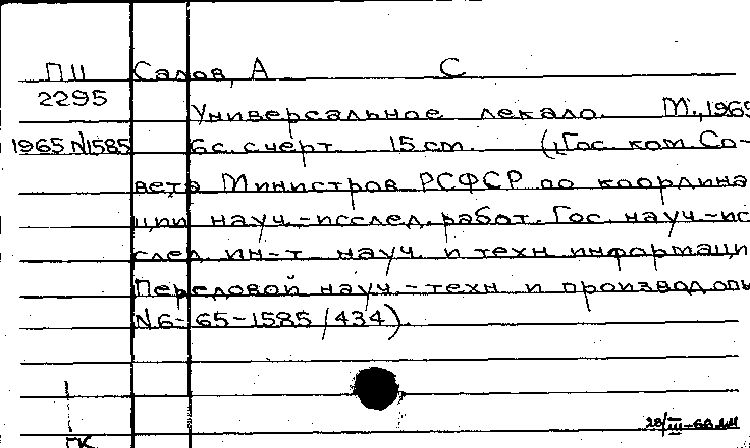 ПИ Салов, А С
2295
Универсальное лекало. М., 1965
1965 N1585 6 с. с черт. 15 cm. (Гос. ком. Со-
вета Министров РСФСР по координа
ции науч.-исслед. работ. Гос. науч.-ис
след. ин-т науч. и техн. информаци
Передовой науч.-техн. и производ. опы
N6-65-1585/434).
28/III-66
ПК